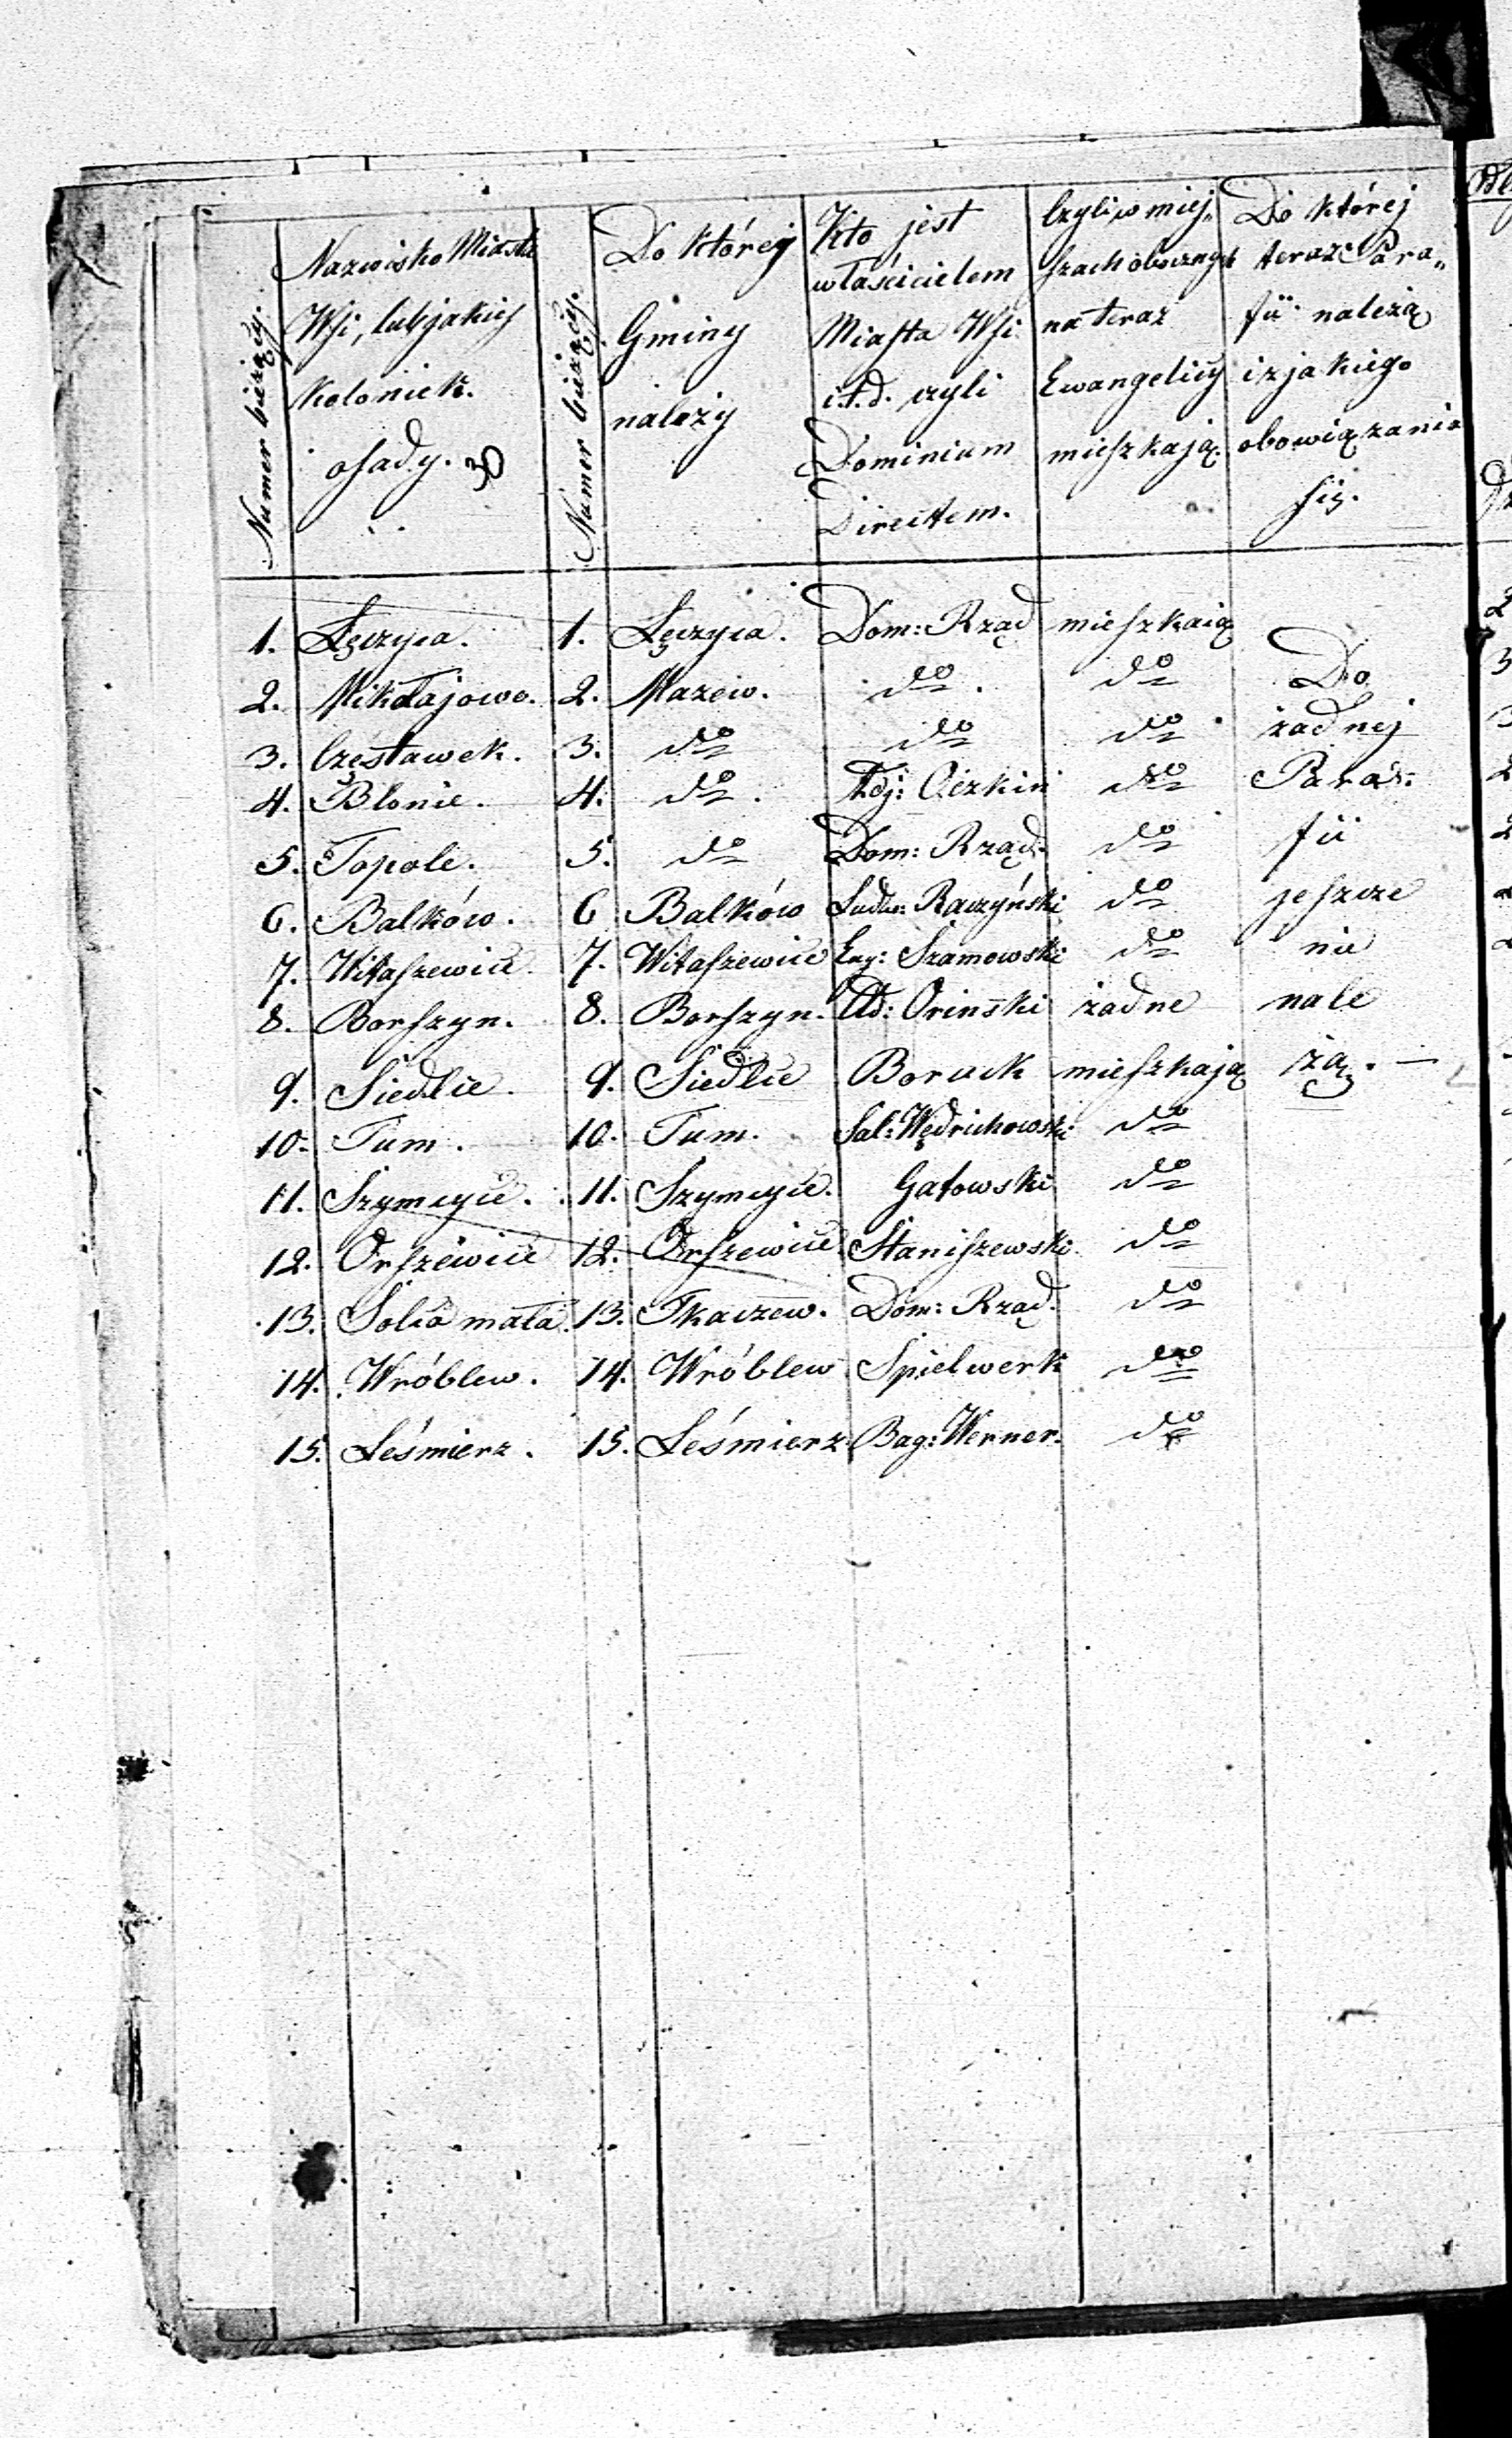 Numer bieżący.
Nazwisko Miasta
Wsi, lub jakiej
koloniek.
osady.
Numer bieżący.
Do której
Gminy
należy
Kto jest
właścicielem
Miasta Wsi
i.t.d. czyli
Dominium
Directem.
Czyli w miej„
na teraz
Ewangelicy
mieszkają.
Do której
teraz Para„
fii należą
i z jakiego
obowiązania
się.
1. Łęczyca. 1. Łęczyca. Dom: Rząd mieszkaią
2. Mikołajowo. 2. Mazew. do. do Do
3. Czesławek. 3. do do do żadnej
4. Błonie. 4. do. do Para=
5. Topole. 5. do Dom: Rząd. do fii
6. Balków. 6 Balków Ludw: Raczyński do jeszcze
7. Witaszewice. 7. Witaszewice Szamowski do nie
8. Borszyn. 8. Borszyn. żadne nale
9. Siedlce. 9. Siedlce mieszkają żą. —
10. Tum. 10. Tum. Sal: Wędrichowski do
11. Szymcyce. 11. Szymcyce. Gatowski do
12. Orszewice 12. Orszewice Staniszewski do
13. Solca mała. 13. Tkaczew. Dom: Rząd. do
14. Wróblew. 14. Wróblew Spielwerk do
15. Leśmierz. 15. Leśmierz Bag: Werner. do